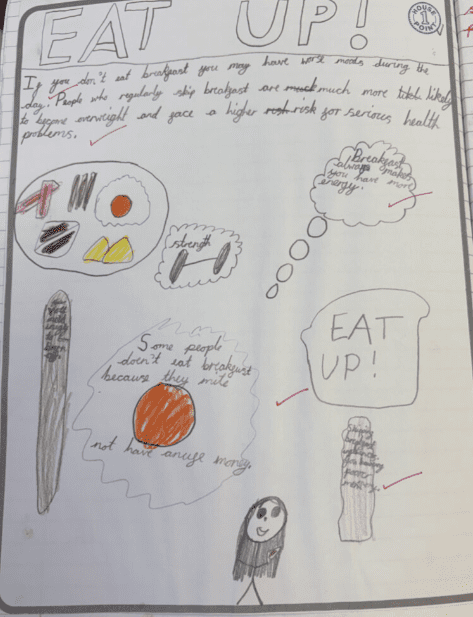 EAT UP!
HOUSE
1
POINT
If you don't eat breakfast you may have worse moods during the
day. People who regularly skip breakfast are much much more likely
to become overweight and face a higher rish risk for serious health
problems.
Breakfast
always makes
you have more
energy.
strength
Some people
doen't eat breakfast
because they mite
not have anuge money.
EAT
UP!